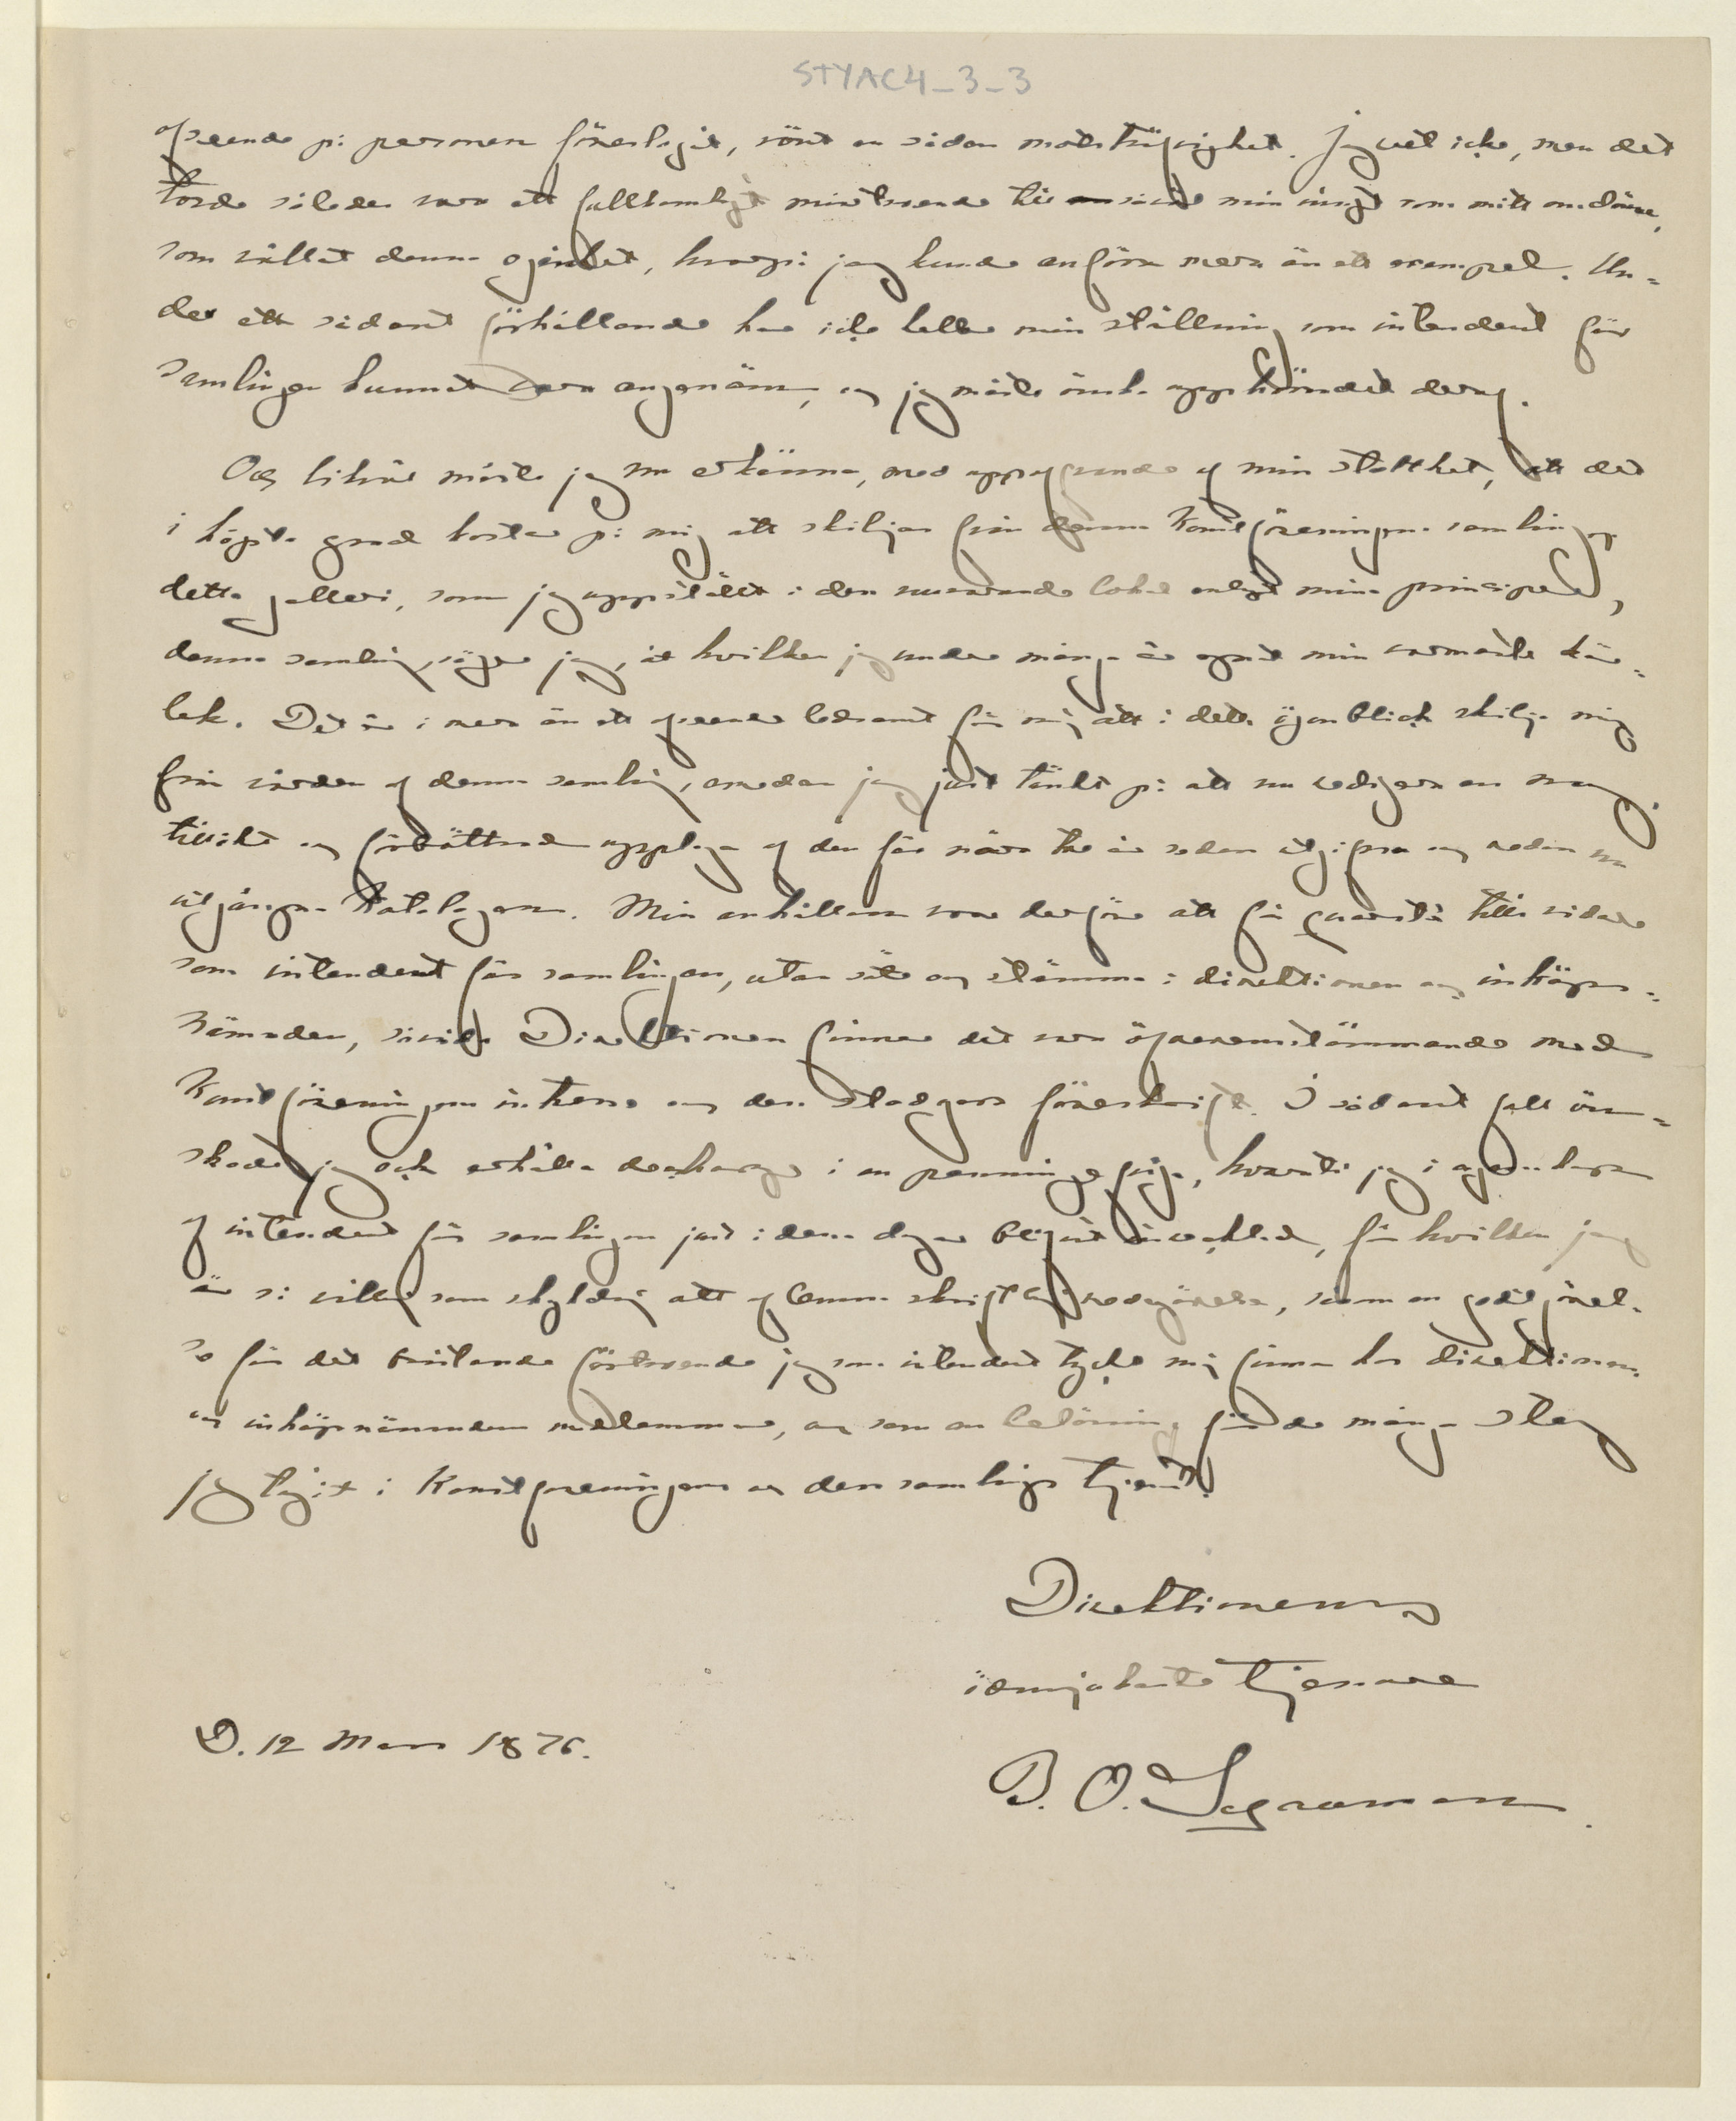 STYAC4_3_3
afseende på personen föreslagit, rönt en sådan motsträfvighet. Jag vet icke, men det
torde således vara ett fullkomligt misstroende till såväl min insigt som mitt omdöme,
som vållat denna ogenhet, hvarpå jag kunde anföra mera än ett exempel. Un-
der ett sådant förhållande har icke heller min ställning som intendent för
samlingen kunnat vara angenäm, och jag måste önska upphörandet deraf.
Och likväl måste jag nu erkänna, med uppoffrande af min stolthet, att det
i högsta grad kostar på mig att skiljas från denna Konstföreningens samling,
detta galleri, som jag uppstält i den nuvarande lokal enligt mina principer,
denna samling, säger jag, åt hvilken jag under många år egnat min varmaste kär-
lek. Det är i mer än ett afseende ledsamt för mig att i detta ögonblick skilja mig
från vården af denna samling, emedan jag just tänkt på att nu redigera en ny
tillökt och förbättrad upplaga af den för nära tre år sedan utgifna och redan nu
utgångna Katalogen. Min anhållan vore derföre att få qvarstå tills vidare
som intendent för samlingen, utan säte och stämma i direktionen och inköps-
nämnden, såvida Direktionen finner det vara öfverensstämmande med
Konstföreningens intresse och dess stadgars föreskrift. I sådant fall ön-
skade jag ock erhålla decharge i en penningefråga, hvaruti jag i egenskap
af intendent för samlingen just i dessa dagar blifvit invecklad, för hvilken jag
är så villig som skyldig att aflemna skriftlig redogörelse, såsom en godtgörel-
se för det bristande förtroende jag som intendent tyckt mig finna hos direktionens
och inköpsnämndens medlemmar, och som en belöning för de många steg
jag tagit i Konstföreningens och dess samlings tjenst.
Direktionens
ödmjukaste tjenare
D. 12 Mars 1876.
B. O. Schauman.